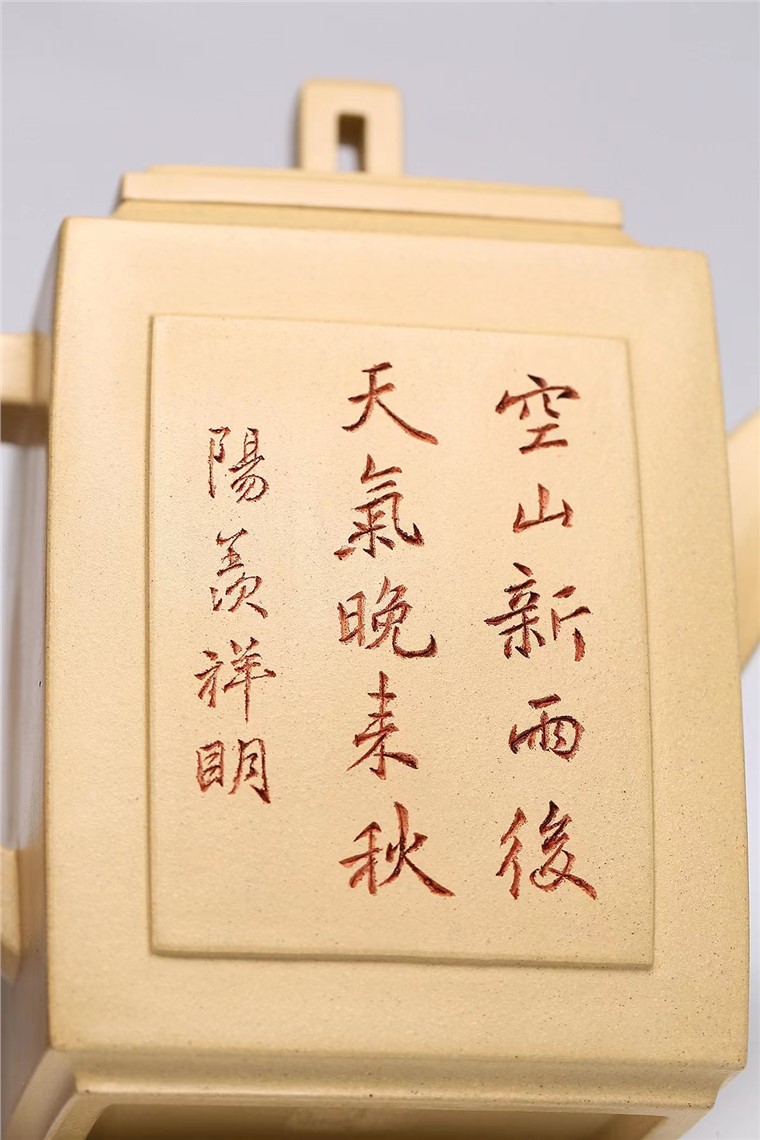 空山新雨後
天氣晚来秋
陽羡祥明